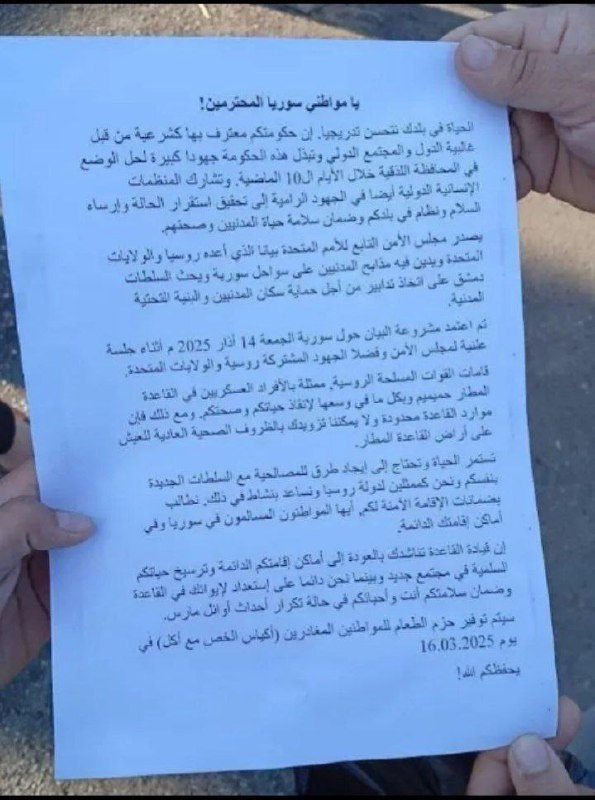 يا مواطني سوريا المحترمين!
الحياة في بلدك تتحسن تدريجيا. إن حكومتكم معترف بها كشرعية من قبل
غالبية الدول والمجتمع الدولي وتبذل هذه الحكومة جهودا كبيرة لحل الوضع
في المحافظة اللاقية خلال الأيام ال10 الماضية. وتشارك المنظمات
الإنسانية الدولية أيضا في الجهود الرامية إلى تحقيق استقرار الحالة وإرساء
السلام ونظام في بلدكم وضمان سلامة حياة المدنيين وصحتهم.
يصدر مجلس الأمن التابع للأمم المتحدة بيانا الذي أعده روسيا والولايات
المتحدة ويدين فيه مذابح المدنيين على سواحل سورية ويحث السلطات
دمشق على اتخاذ تدابير من أجل حماية سكان المدنيين والبنية التحتية
المدنية.
تم اعتماد مشروعة البيان حول سورية الجمعة 14 آذار 2025 م أثناء جلسة
علنية لمجلس الأمن وفضلا الجهود المشتركة روسية والولايات المتحدة.
قامات القوات المسلحة الروسية, ممثلة بالأفراد العسكريين في القاعدة
المطار حميميم وبكل ما في وسعها لإنقاذ حياتكم وصحتكم. ومع ذلك فإن
موارد القاعدة محدودة ولا يمكننا تزويدك بالظروف الصحية العادية للعيش
على أراض القاعدة المطار.
تستمر الحياة وتحتاج إلى إيجاد طرق للمصالحية مع السلطات الجديدة
بنفسكم ونحن كممثلين لدولة روسيا ونساعد بنشاط في ذلك. نطالب
بضمانات الإقامة الآمنة لكم, أيها المواطنون المسالمون في سوريا وفي
أماكن إقامتك الدائمة.
إن قيادة القاعدة تناشدك بالعودة إلى أماكن إقامتكم الدائمة وترسيخ حياتكم
السلمية في مجتمع جديد وبينما نحن دائما على إستعداد لإيوائك في القاعدة
وضمان سلامتكم أنت وأحبائكم في حالة تكرار أحداث أوائل مارس.
سيتم توفير حزم الطعام للمواطنين المغادرين (أكياس الخص مع أكل) في
يوم 16.03.2025
يحفظكم الله!